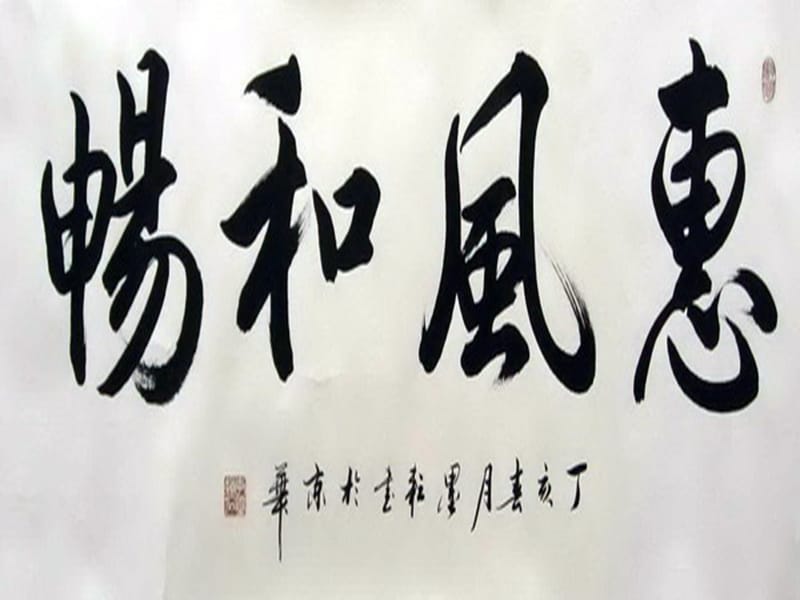 惠風和暢
丁亥春月墨軒書於京華